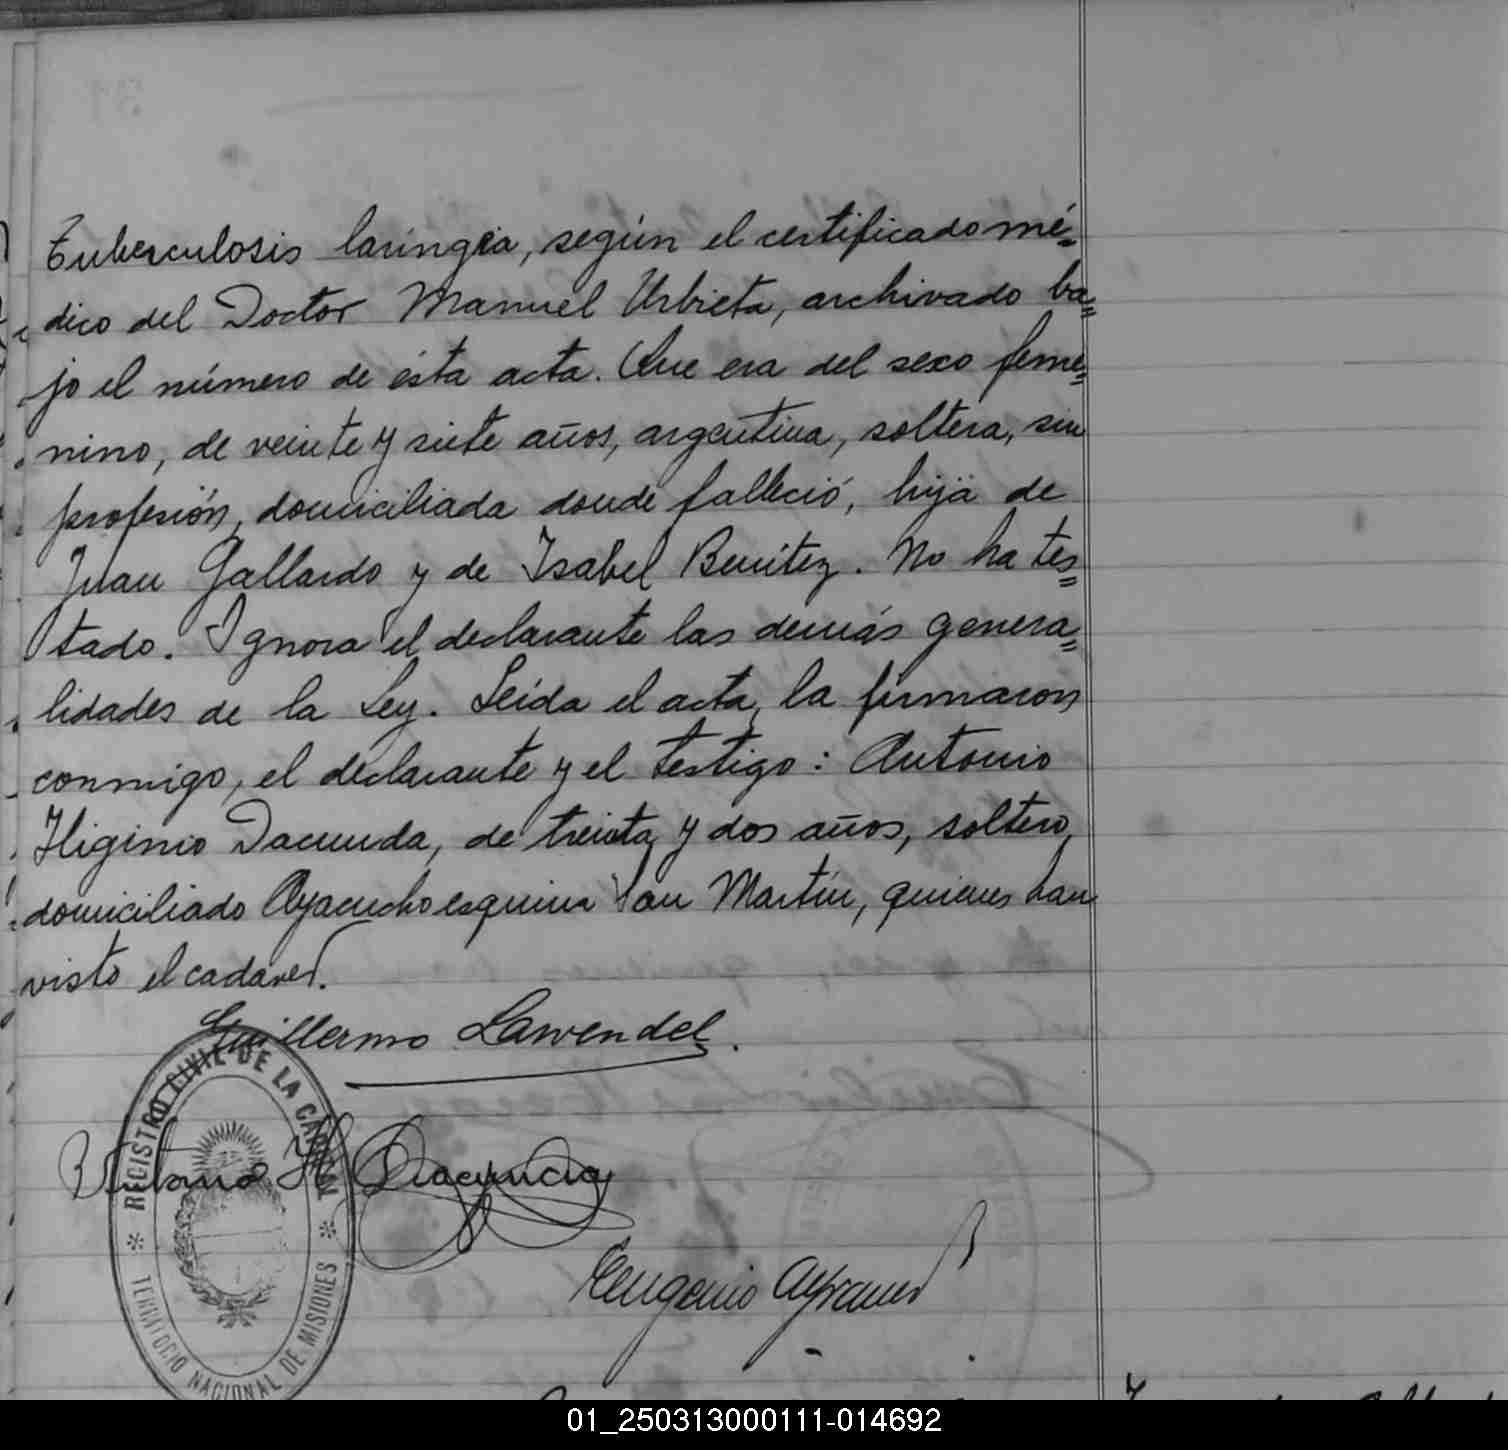 Tuberculosis laringea, según el certificado mé=
dico del Doctor Manuel Urbieta, archivado ba=
jo el número de ésta acta. Que era del sexo feme=
nino, de veinte y siete años, argentina, soltera, sin
profesión, domiciliada donde falleció, hija de
Juan Gallardo y de Isabel Benitez. No ha tes=
tado. Ignora el declarante las demás genera=
lidades de la Ley. Leida el acta, la firmaron
conmigo, el declarante y el testigo: Antonio
Higinio Dacunda, de treinta y dos años, soltero,
domiciliado Ayacucho esquina San Martín, quienes han
visto el cadaver.
Guillermo Lawendel.
REGISTRO CIVIL DE LA CAPITAL
Antonio H Dacunda
Eugenio
TERRITORIO NACIONAL DE MISIONES
01_250313000111-014692